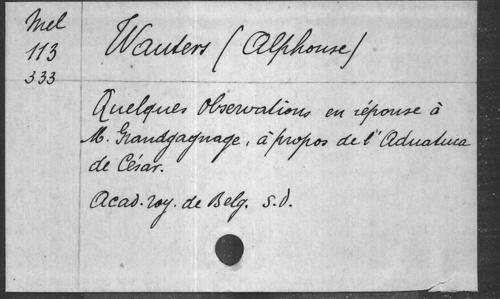 Mel
113
333
Wauters (Alphonse)
Quelques Observations en réponse à
M. Grandgagnage, à propos de l'Aduatuca
de César.
Acad. roy. de Belg. S.d.